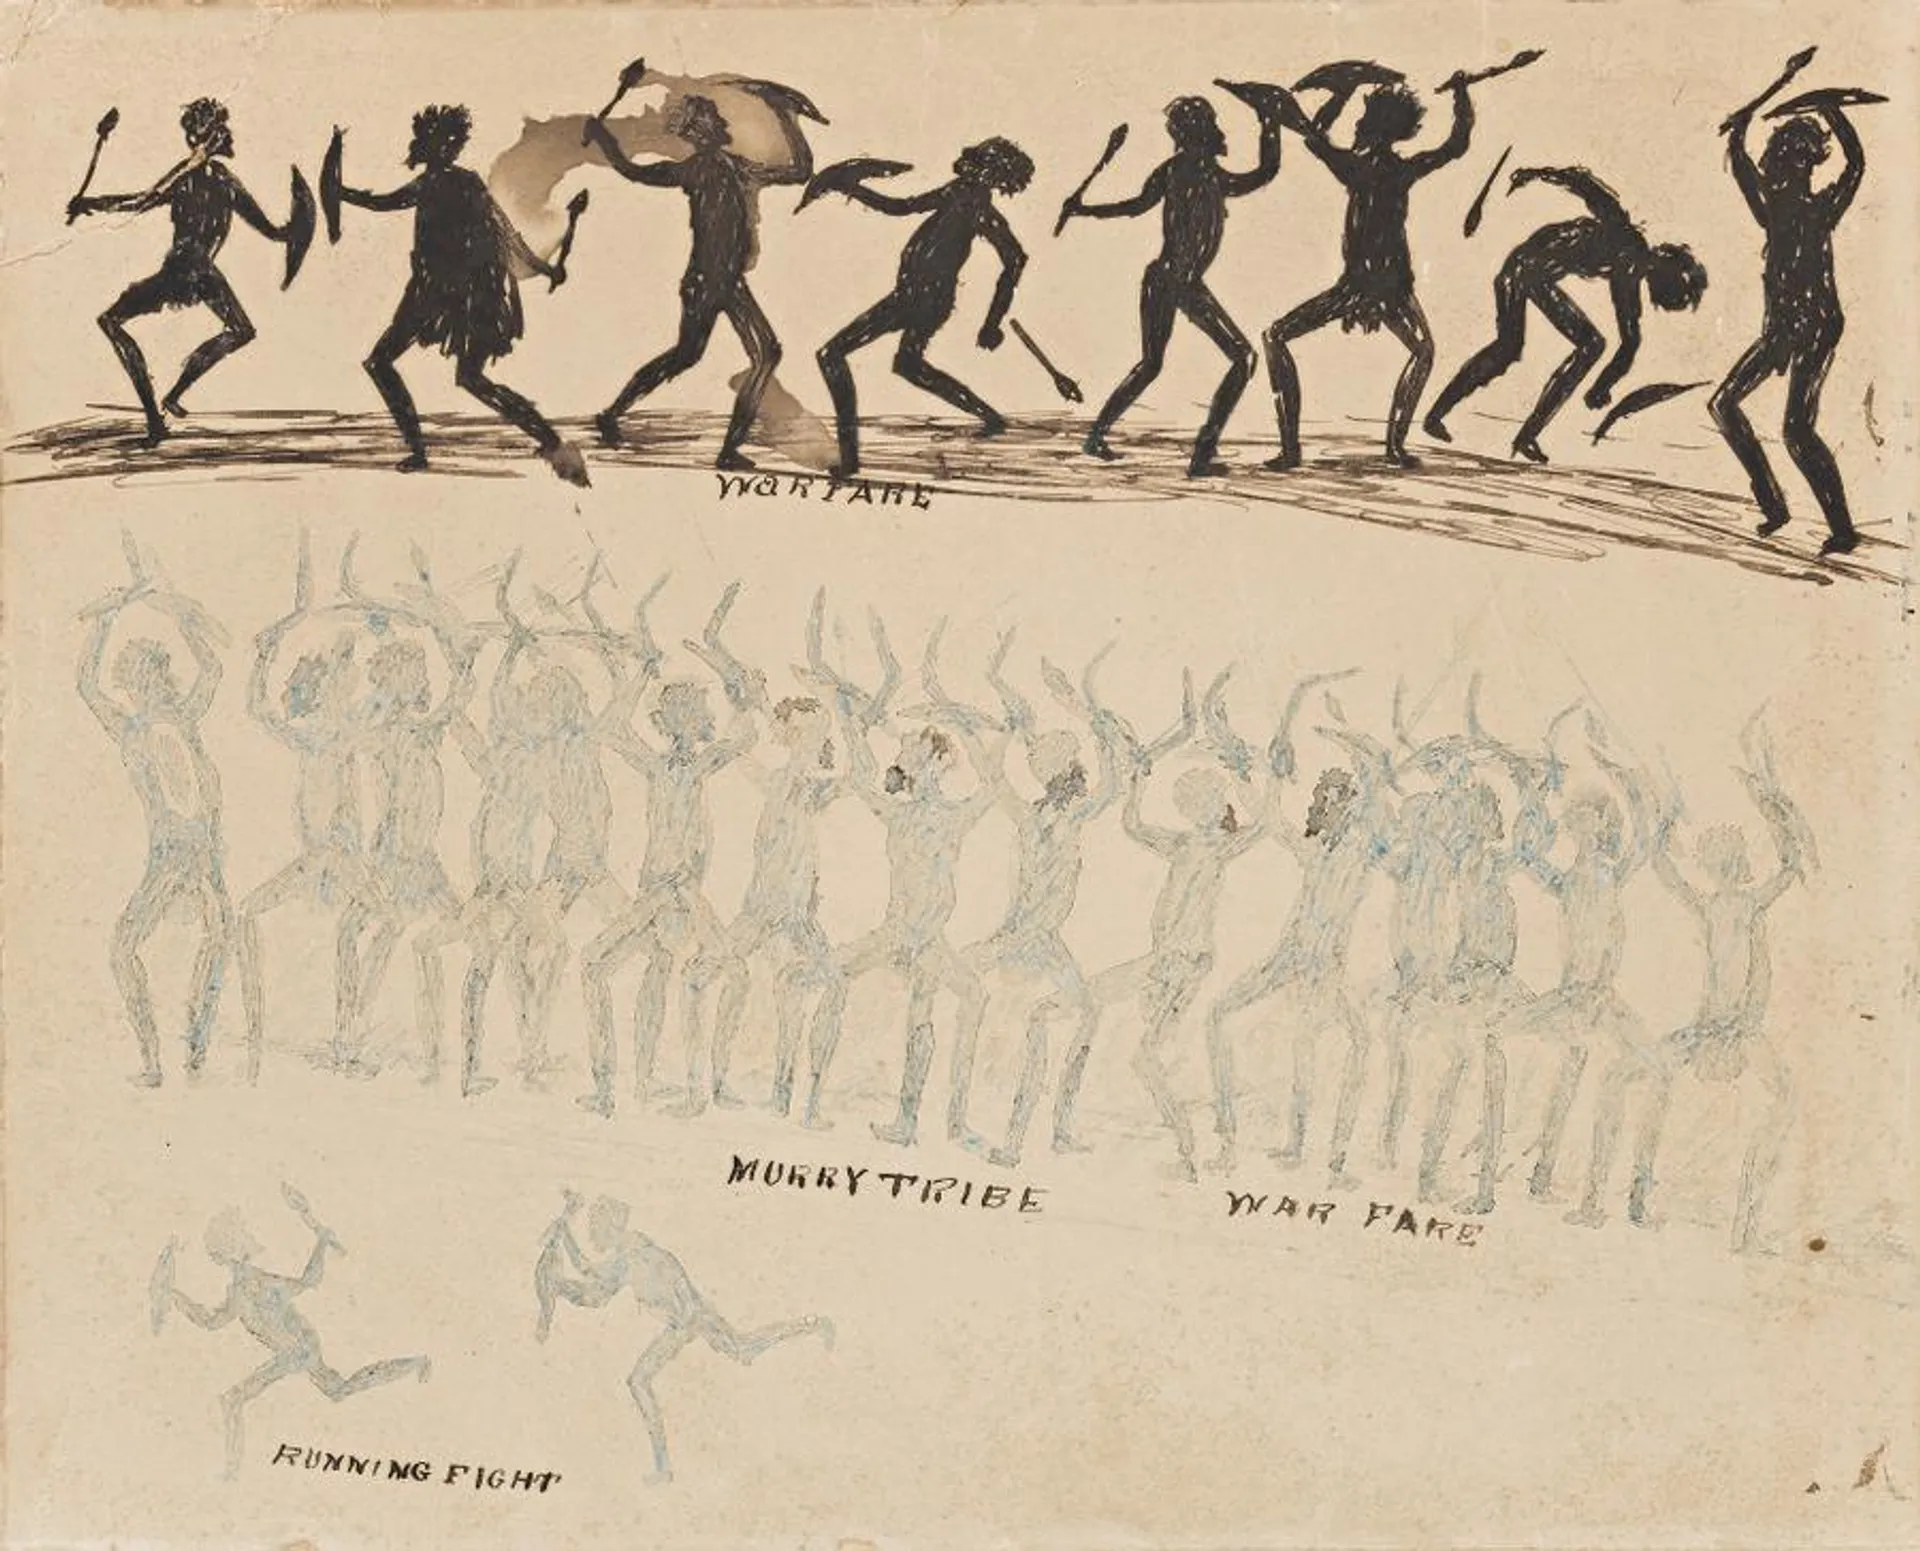 WARFARE
MURRY TRIBE
WAR FARE
RUNNING FIGHT